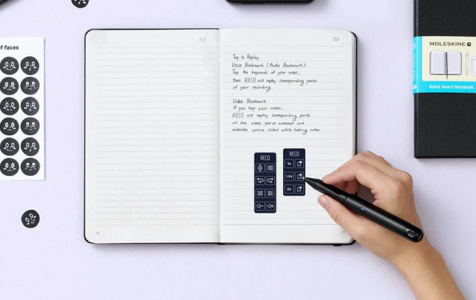 of faces
Tap to Replay
Voice Bookmark (Audio Bookmark)
Tap the keywords of your notes,
then RECO will replay corresponding parts
of your recording.
Video Bookmark
If you tap your notes,
RECO will replay corresponding parts
of the video you've watched and
websites you've visited while taking notes.
RECO
RECO
MOLESKINE
Ruled Smart Notebook